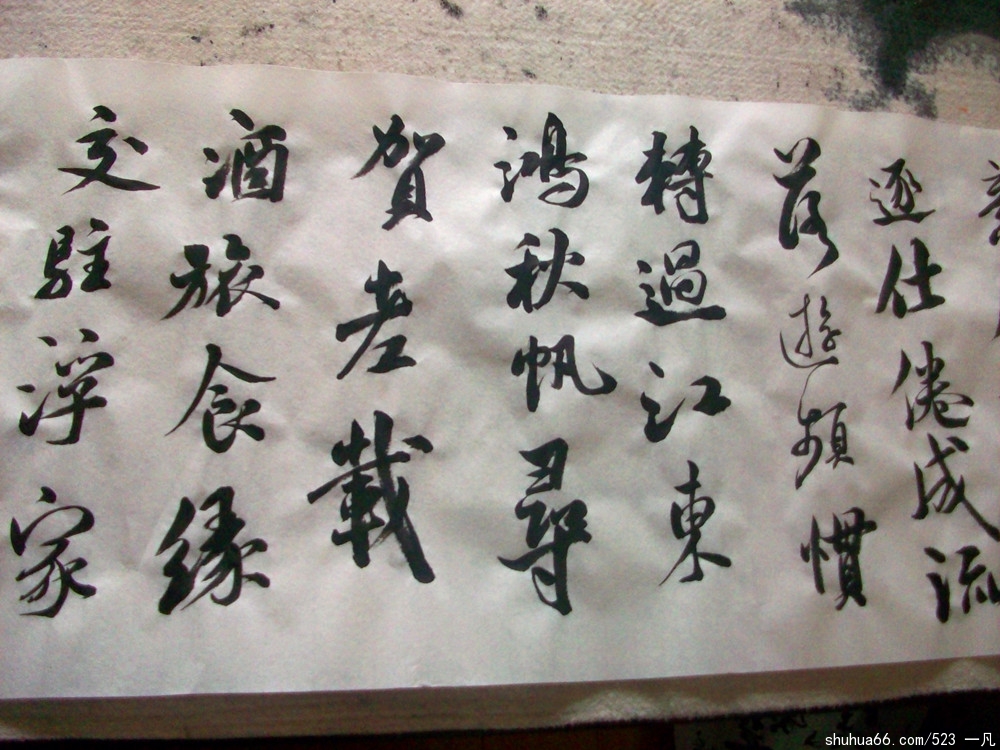 逐仕倦成流
落遊頻慣
轉過江東
鴻秋帆尋
賀老載
酒旅食緣
交駐浮家
shuhua66.com/523 一凡